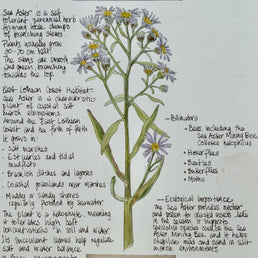 Sea Aster is a salt
tolerant perennial herb
forming loose clumps
of branching stems
Plants usually grow
30-70 cm tall.
The stems are smooth
and green, branching
towards the top.
East Lothian Coast Habitat
Sea Aster is a characteristic
plant of coastal salt
marsh ecosystems.
Around the East Lothian
coast and the firth of forth
it grows in:
- Salt marshes
- Estuaries and tidal
mudflats
- Brackish ditches and lagoons
- Coastal grasslands near marshes
- Muddy or sandy shores
regularly flooded by seawater
The plant is a halophyte, meaning
it tolerates high salt
concentrations in soil and water
Its succulent leaves help regulate
salt and water balance
- Pollinators
- Bees, including the
Sea Aster Mining Bee,
Colletes halophilus
- Hoverflies
- Beetles
- Butterflies
- Moths
- Ecological Importance
The Sea Aster provides nectar
and pollen for coastal insects late
in the season. It supports
specialist species such as the Sea
Aster Mining Bee, and it helps
stabilise mud and sand in salt
marsh environments.